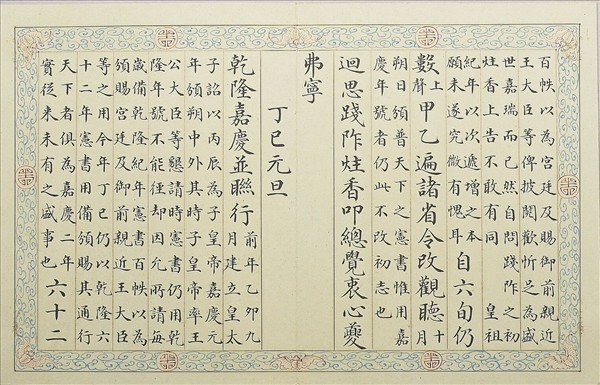 百帙以為宮廷及賜御前親近
王大臣等俾披閱歡忻足為盛
世嘉瑞而已然自問踐阼之初
炷香上告不敢有同 皇祖
紀年以次遞增之本
願未遂究微有愧耳自六旬仍
數上聲甲乙遍諸省令改觀聽十月
朔日頒普天下之憲書惟用嘉
慶年號者仍此不改初志也
迴思踐阼炷香叩總覺衷心夔
弗寧
丁巳元旦
乾隆嘉慶並聯行前年乙卯九
月建立皇太
子詔以丙辰為子皇帝嘉慶元
年頒朔中外其時子皇帝率王
公大臣等懇請時憲書仍用乾
隆年號不能徑却因允所請每
歲備乾隆紀年憲書百帙以為
頒賜宮廷及御前親近王大臣
等之用今年丁巳仍以乾隆六
十二年憲書用備頒賜其通行
天下者俱為嘉慶二年
實從來未有之盛事也六十二